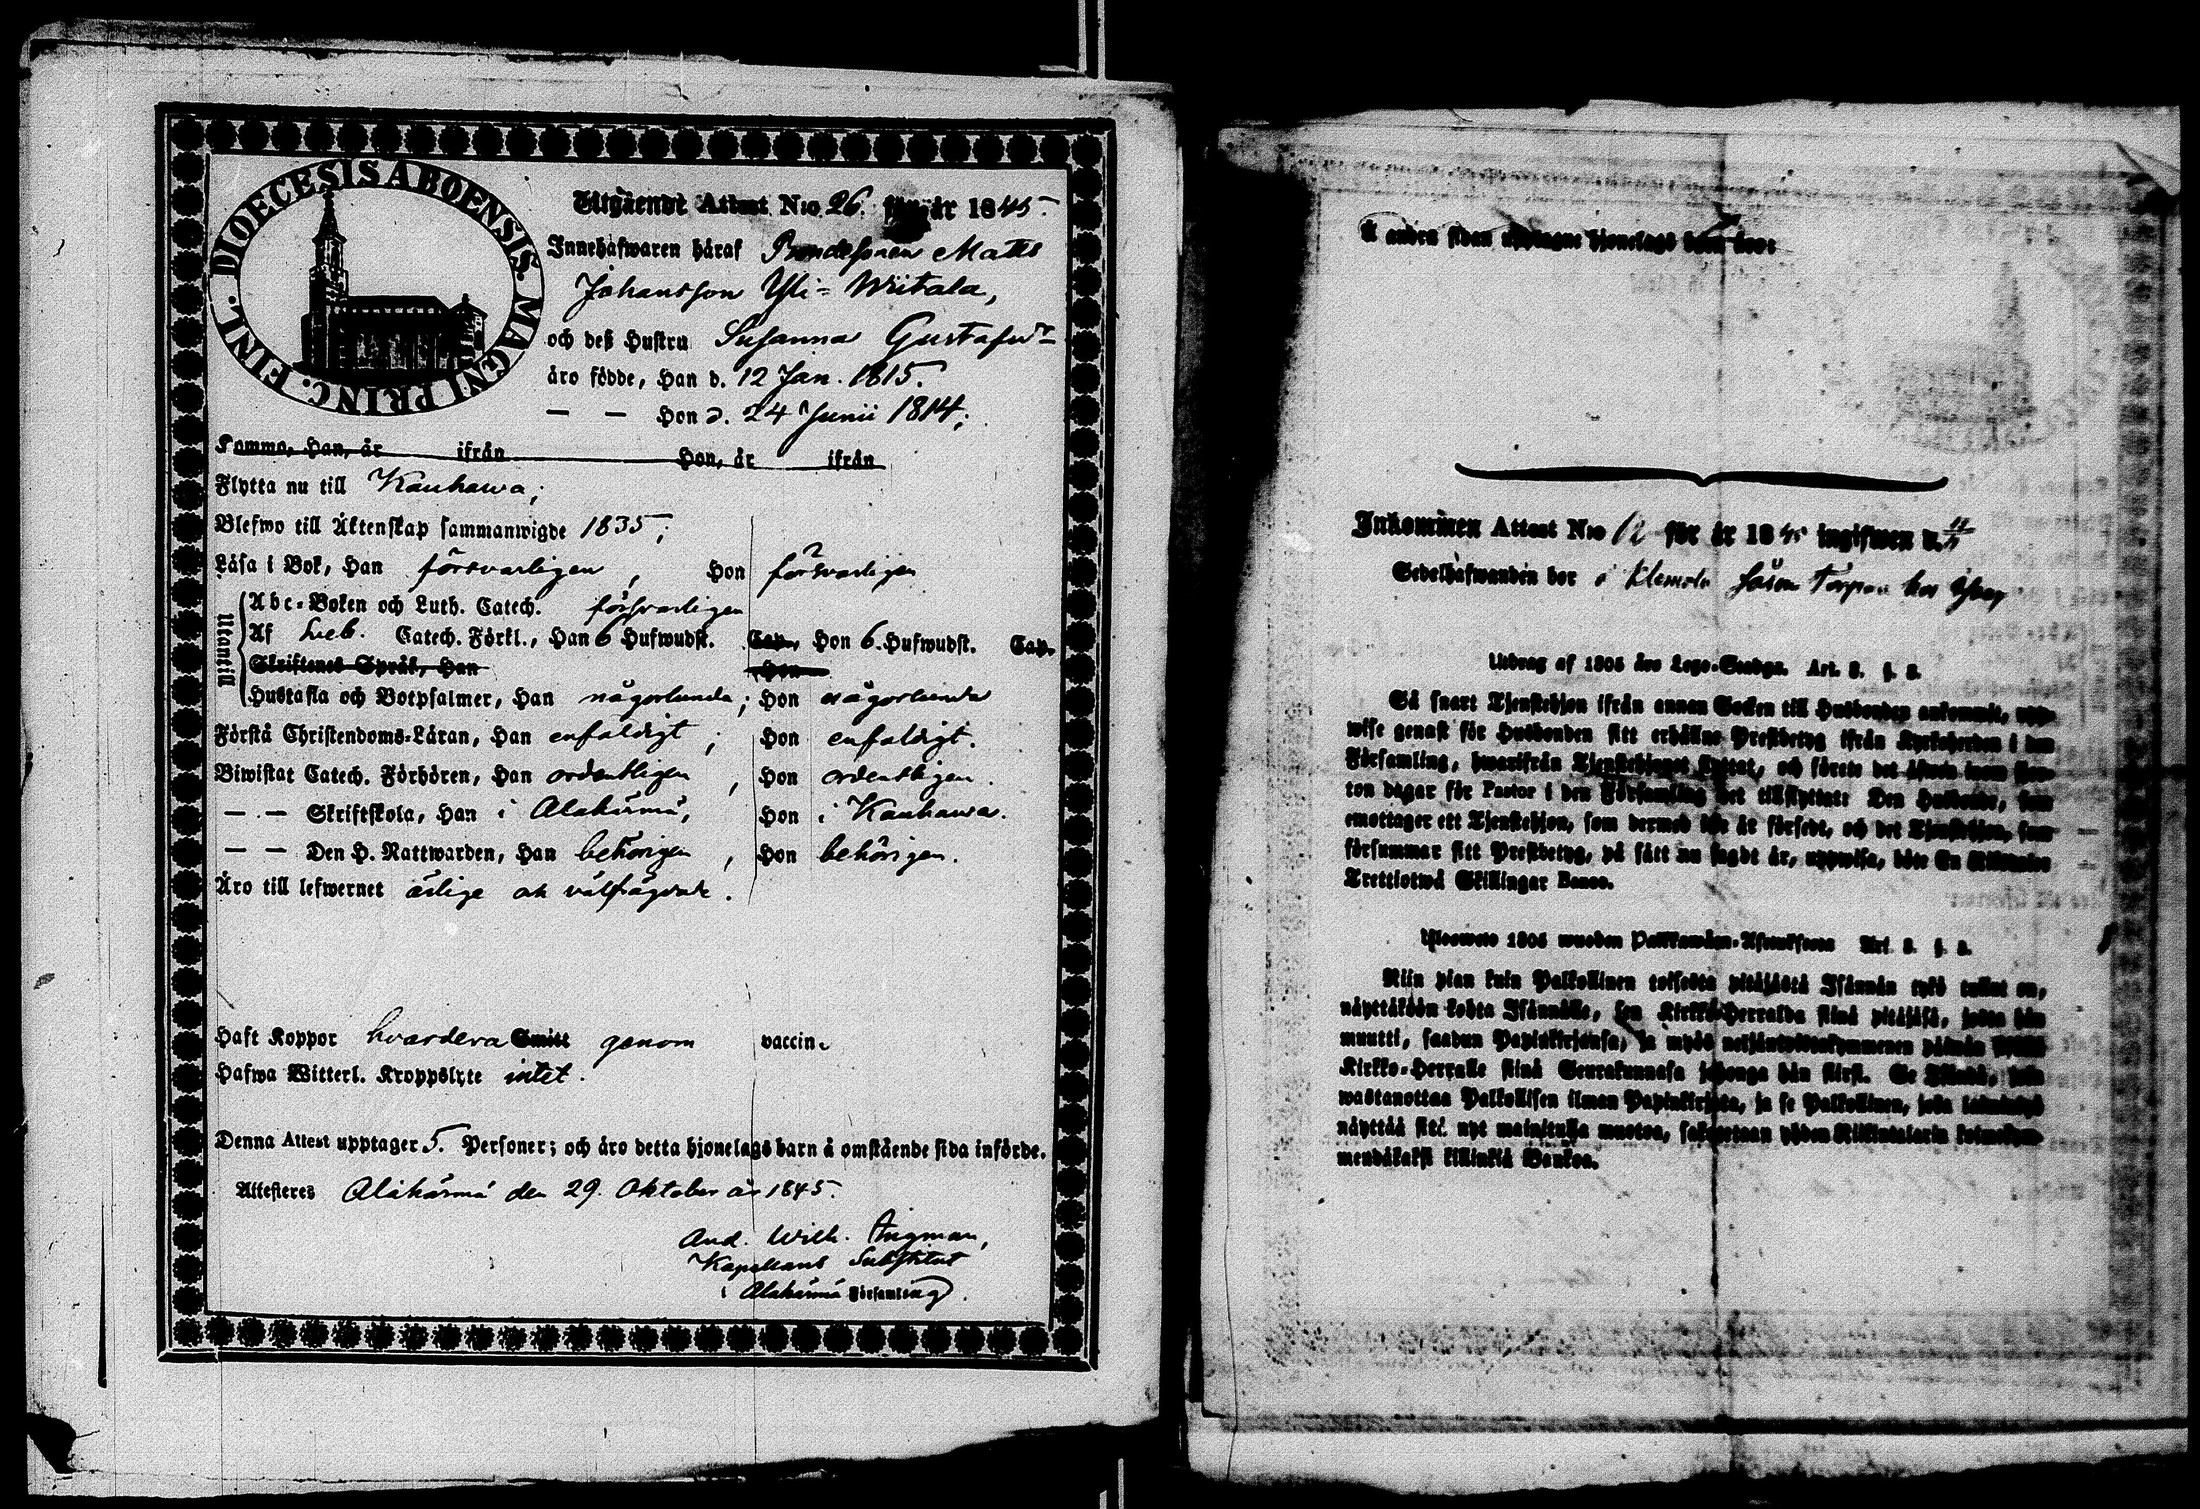 DIOECESIS ABOENSIS. MAGNI PRINC. FINL.
Utgående Attest N:o 26. för år 1845.
Innehafwaren häraf Bondesonen Matts
Johansson Yli-Wiitala,
och deß Hustru Susanna Gustafsdr
äro födde, Han d. 12 Jan. 1815.
— — Hon d. 24 Junii 1814;
Komma, Han, år ifrån Hon, år ifrån
Flytta nu till Kauhawa;
Blefwo till Äktenskap sammanwigde 1835;
Läsa i Bok, Han försvarligen, Hon försvarligen
Utantill
Abc-Boken och Luth. Catech. försvarligen
Af Sveb. Catech. Förkl., Han 6 Hufwudst. Cap., Hon 6. Hufwudst. Cap.
Skriftenes Språk, Han Hon
Hustafla och Botpsalmer, Han någorlunda; Hon någorlunda
Förstå Christendoms-Läran, Han enfaldigt; Hon enfaldigt.
Biwistat Catech. Förhören, Han ordentligen, Hon ordentligen.
— — Skriftskola, Han i Alahärmä, Hon i Kauhawa.
— — Den H. Nattwarden, Han behörigen, Hon behörigen.
Äro till lefwernet ärlige och välfrägdade.
Haft Koppor hvardera Smitt genom vaccin.
Hafwa Witterl. Kroppslyte intet.
Denna Attest upptager 5. Personer; och äro detta hjonelags barn å omstående sida införde.
Attesteres Alahärmä den 29. Oktober år 1845.
And. Wilh. Ingman,
Kapellans Substitut
i Alahärmä Församling.
Å andra sidan upptagne hjonelags barn äro:
Inkommen Attest N:o 12 för år 1845 ingifwen d.
Sedelhafwanden bor i Klemola såsom Torpare hos
Utdrag af 1805 års Lego-Stadga. Art. 3. §. 3.
Så snart Tjenstehjon ifrån annan Socken till Husbonden ankommit, upp-
wise genast för Husbonden sitt erhållne Prestbetyg ifrån Kyrkoherden i den
Församling, hwarifrån Tjenstehjonet flyttat, och förete det äfwen inom fjor-
ton dagar för Pastor i den Församling det tillflyttat: Den Husbonde, som
emottager ett Tjenstehjon, som dermed icke är försedt, och det Tjenstehjon, som
försummar sitt Prestbetyg, på sätt nu sagdt är, uppwisa, böte En Riksdaler
Trettiotwå Skillingar Banco.
Ulosweto 1805 wuoden Palkkawäen-Asetuksesta Art. 3. §. 3.
Niin pian kuin Palkollinen toisesta pitäjästä Isännän tykö tullut on,
näyttäköön kohta Isännälle, sen Kirkko-Herralda siinä pitäjäsä, josta hän
muutti, saadun Papinkirjansa, ja myös neljäntoistakymmenen päiwän
Kirkko-Herralle siinä Seurakunnasa johonga hän siirsi. Se Isändä, joka
wastanottaa Palkollisen ilman Papinkirjata, ja se Palkollinen, joka laiminlyö
näyttää sitä nyt mainitulla muotoa, sakotetaan yhden Riikintalarin kolmekym-
mendäkaksi killinkiä Bankoa.